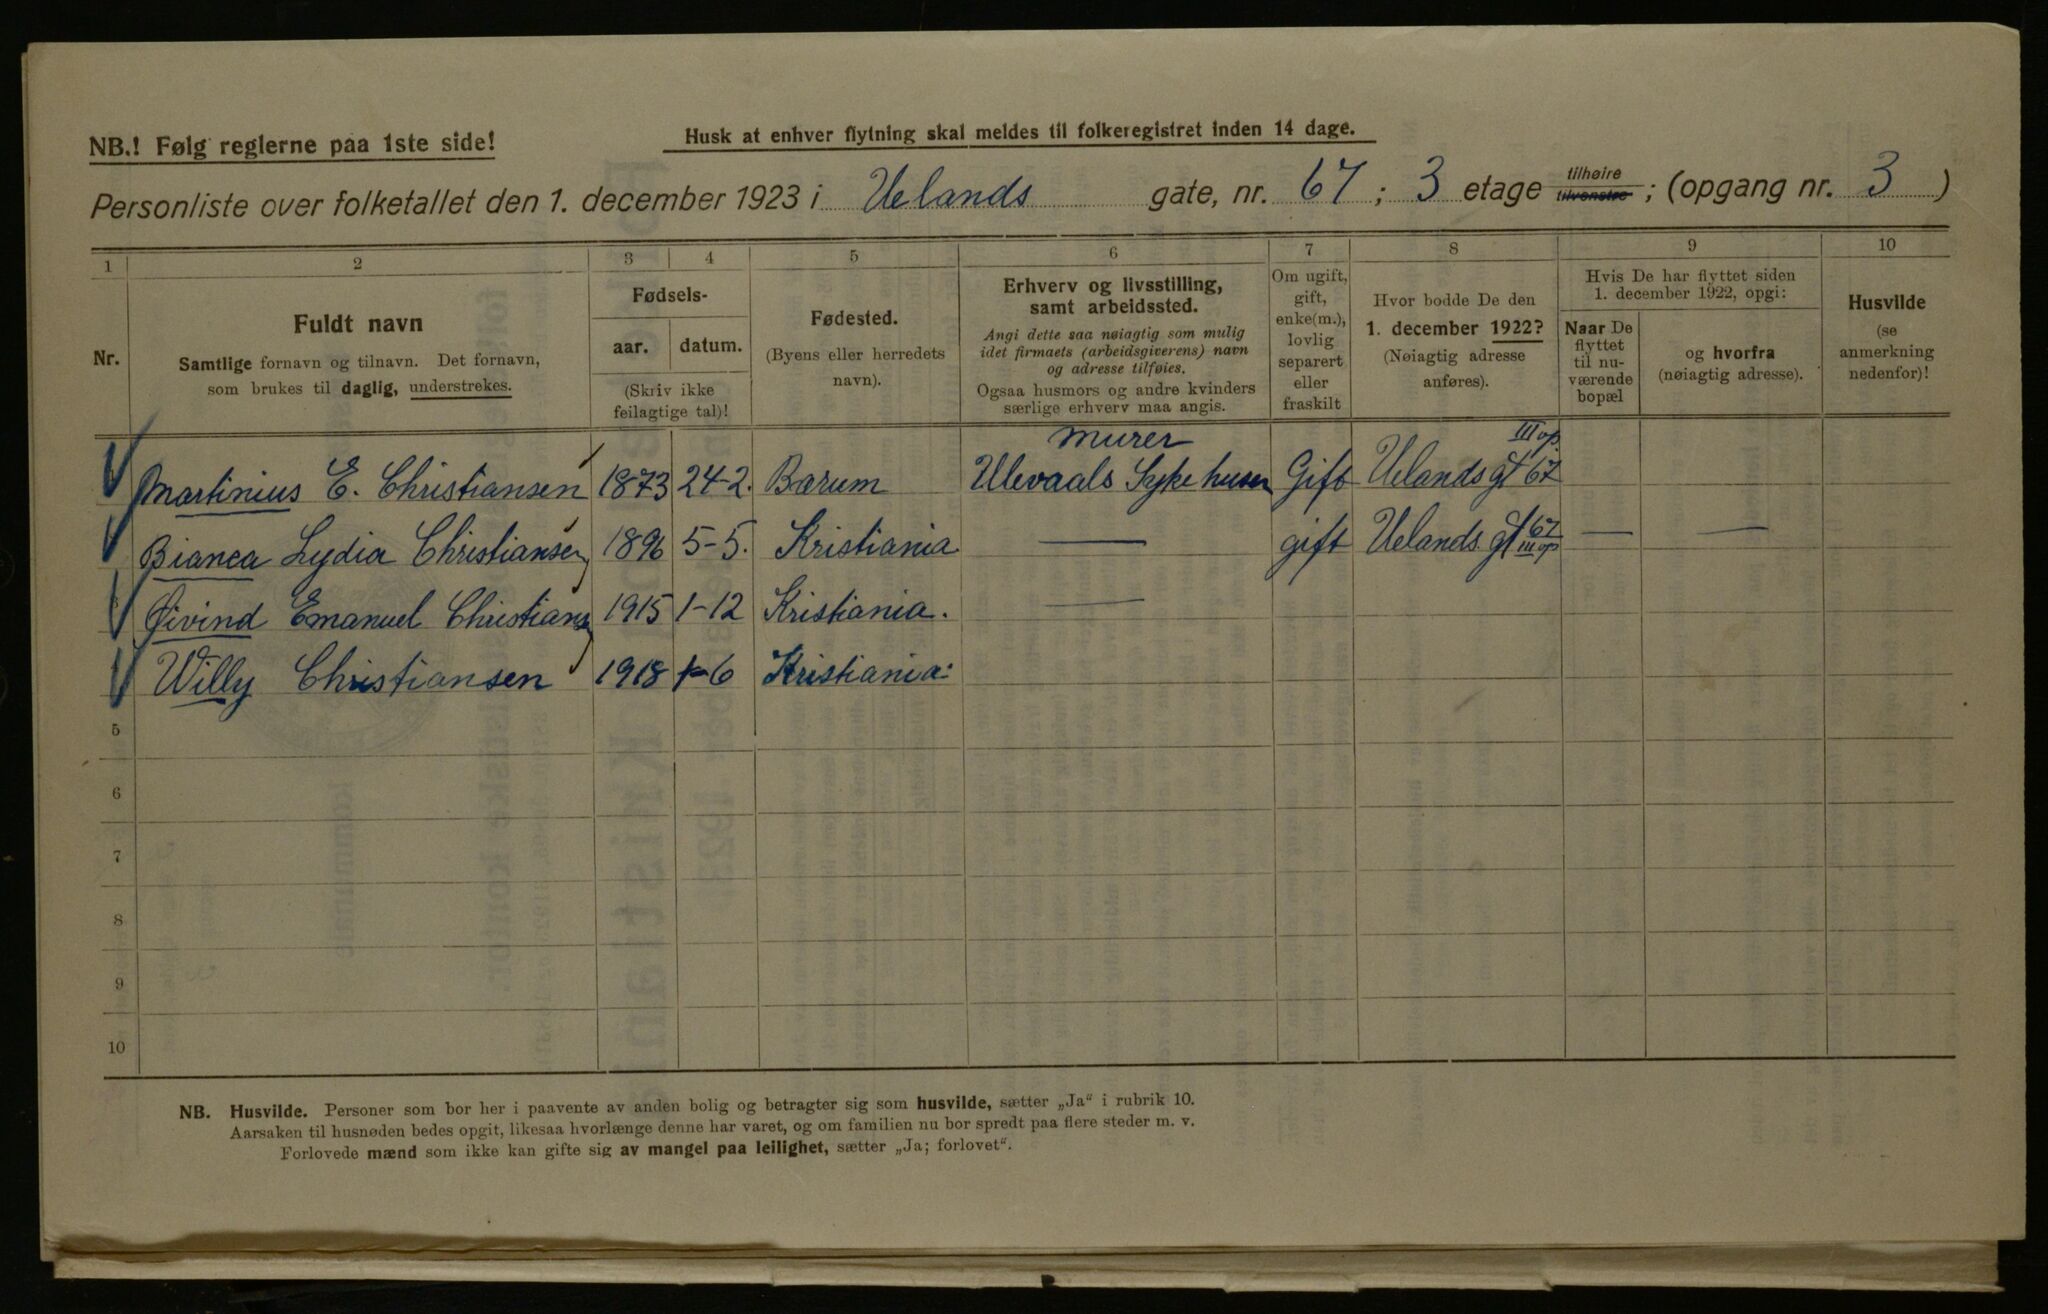 NB.! Følg reglerne paa 1ste side!
Husk at enhver flytning skal meldes til folkeregistret inden 14 dage.
Personliste over folketallet den 1. december 1923 i Uelands gate, nr. 67; 3 etage tilhøire tilvenstre; (opgang nr. 3)
1 2 3 4 5 6 7 8 9 10
Nr.
Fuldt navn
Samtlige fornavn og tilnavn. Det fornavn,
som brukes til daglig, understrekes.
Fødsels-
aar. datum.
(Skriv ikke
feilagtige tal)!
Fødested.
(Byens eller herredets
navn).
Erhverv og livsstilling,
samt arbeidssted.
Angi dette saa nøiagtig som mulig
idet firmaets (arbeidsgiverens) navn
og adresse tilføies.
Ogsaa husmors og andre kvinders
særlige erhverv maa angis.
Om ugift,
gift,
enke(m.),
lovlig
separert
eller
fraskilt
Hvor bodde De den
1. december 1922?
(Nøiagtig adresse
anføres).
Hvis De har flyttet siden
1. december 1922, opgi:
Naar De
flyttet
til nu-
værende
bopæl
og hvorfra
(nøiagtig adresse).
Husvilde
(se
anmerkning
nedenfor)!
Murer III op.
Martinius E. Christiansen 1873 24-2. Bærum Ulevaals Sykehuser Gift Uelands gt 67
Bianca Lydia Christiansen 1896 5-5. Kristiania — gift Uelands gt 67 III op — —
Øivind Emanuel Christians 1915 1-12 Kristiania. —
Willy Christiansen 1918 1-6 Kristiania.
5
6
7
8
9
10
NB. Husvilde. Personer som bor her i paavente av anden bolig og betragter sig som husvilde, sætter „Ja" i rubrik 10.
Aarsaken til husnøden bedes opgit, likesaa hvorlænge denne har varet, og om familien nu bor spredt paa flere steder m. v.
Forlovede mænd som ikke kan gifte sig av mangel paa leilighet, sætter „Ja; forlovet".